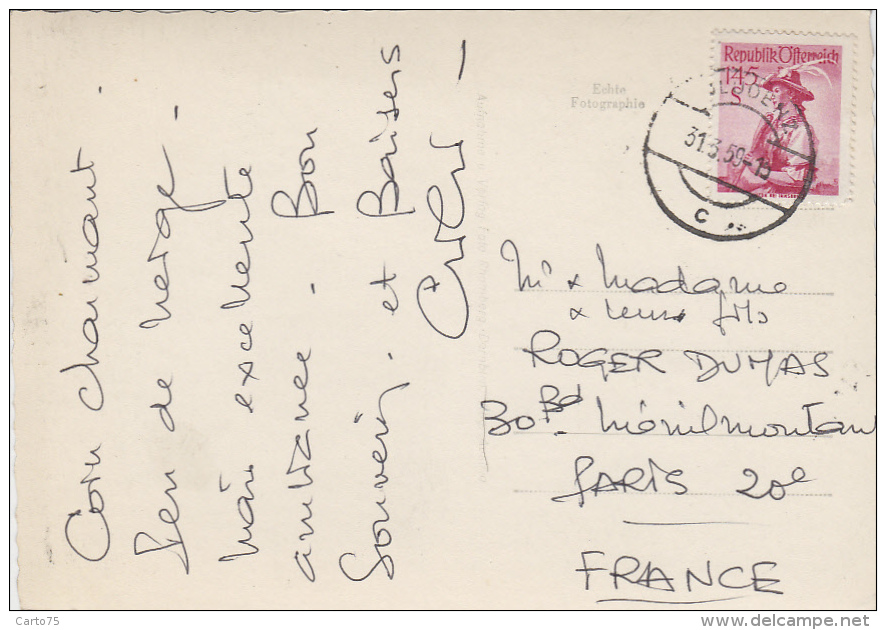 Coin charmant.
Peu de neige -
mais excellente
ambiance. Bon
Souvenir. et Baisers
Echte
Fotographie
Republik Österreich
1.45
S
31.3.59-15
C
M & Madame
& leurs fils
ROGER DUMAS
30 Bd. Ménilmontant
PARIS 20e
FRANCE
Carto75
www.delcampe.net